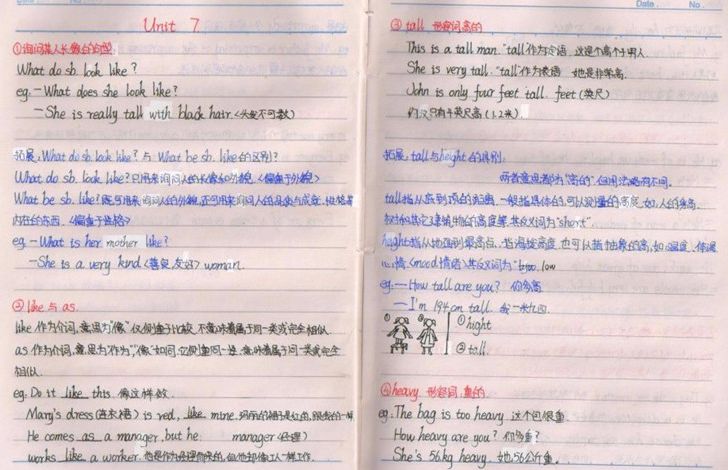 Unit 7
①询问某人长像的句型
What do sb. look like?
eg. - What does she look like?
- She is really tall with black hair. <头发不可数>
拓展: What do sb. look like? 与 What be sb. like 的区别?
What do sb. look like? 只用来询问人的长像和外貌. <偏重于外貌>
What be sb. like? 既可用来询问人的外貌, 还可用来询问人的品质与
内在的东西. <偏重于性格>
eg - What is her mother like?
- She is a very kind <善良, 友好> woman.
② like 与 as.
like 作为介词, 意思为"像" 仅侧重于比较, 不意味着属于同一类或完全相似
as 作为介词, 意思为"作为", "像"如同, 它侧重同一 意味着属于同一类或完全
相似.
eg. Do it like this. 像这样做.
Mary's dress is red, like mine.
He comes as a manager, but he manager (经理)
works like a worker.
Date No.
③ tall 形容词高的
This is a tall man. "tall"作为定语. 这是个高个男人.
She is very tall. "tall"作为表语. 她是非常高.
John is only four feet tall. feet (英尺)
约汉只有4英尺高 (1.2米).
拓展: tall 与 height 的区别.
两者意思都为"高的" 但用法略有不同.
tall 指从底到顶的距离, 一般指具体的可以测量的高度, 如: 人的身高,
树和其它建筑物的高度等. 其反义词为"short".
height 指从地面到最高点, 指海拔高度, 也可以指抽象的高, 如: 温度,
心情 <mood 情绪> 其反义词为" low
eg: -- How tall are you? 你多高
-- I'm 194cm tall. 我一米九四.
① hight
② tall.
④ heavy 形容词. 重的
eg. The bag is too heavy. 这个包很重.
How heavy are you? 你多重?
She's 56kg heavy. 她56公斤重.